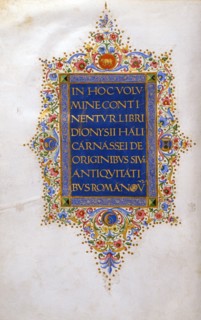 IN HOC VOLV
MINE CONTI
NENTVR LIBRI
DIONYSII HALI
CARNASSEI DE
ORIGINIBVS SIVE
ANTIQVITATI
BVS ROMANOV̄